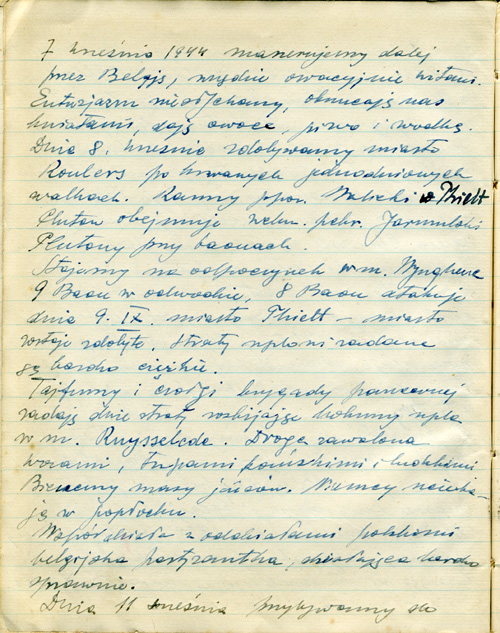 7 września 1944 maszerujemy dalej
przez Belgję, wszędzie owacyjnie witani.
Entuzjazm niesłychany, obrzucają nas
kwiatami, dają owoce, piwo i wódkę.
Dnia 8. września zdobywamy miasto
Roulers po krwawych jednodniowych
walkach. Ranny ppor. Walicki w Thielt
Pluton obejmuje pchr. Jarmulski
Plutony przy baonach.
Stajemy na odpoczynek w m. Wynghene
9 Baon w odwodzie, 8 Baon atakuje
dnia 9. IX. miasto Thielt – miasto
zostaje zdobyte. Straty npla zadane
są bardzo ciężkie.
Tajfuny i czołgi brygady pancernej
zadają duże straty rozbijając kolumny npla
w m. Ruysselede. Droga zawalona
wozami, trupami końskimi i ludzkimi
Bierzemy masy jeńców. Niemcy uciek-
ją w popłochu.
Współdziała z oddziałami polskimi
belgijska partyzantka, działająca bardzo
sprawnie.
Dnia 11 września przybywamy do